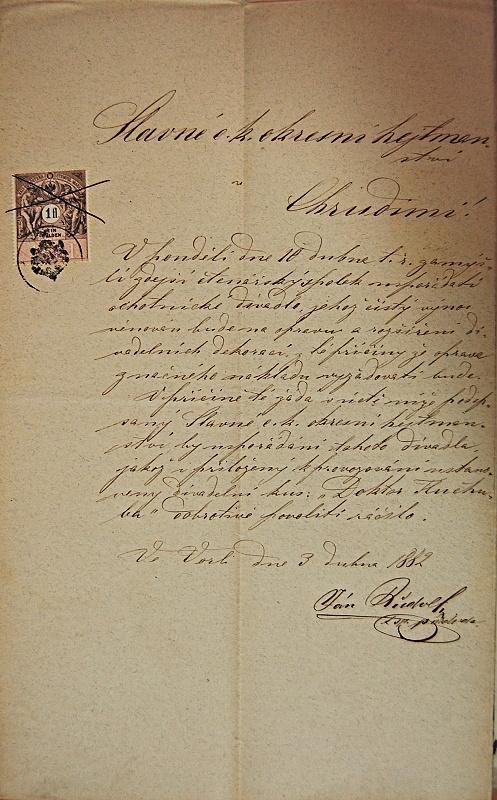 Slavné c. k. okresní hejtman-
ství
Chrudimi!
1 fl
EIN
GULDEN
V pondělí dne 10 dubna t. r. zamýš-
lí zdejší čtenářský spolek uspořádati
ochotnické divadlo, jehož čistý výnos
věnován bude na opravu a rozšíření di-
vadelních dekorací, z té příčiny že oprava
značného nákladu vyžadovati bude.
V příčině té žádá v úctě níže pode-
psaný Slavné c. k. okresní hejtman-
ství by uspořádání tohoto divadla
jakož i přiložený k provozování ustano-
vený divadelní kus: „Doktor
dobrotivě povoliti ráčilo.
Ve dne 3 dubna 1882
Ján Rudolf,